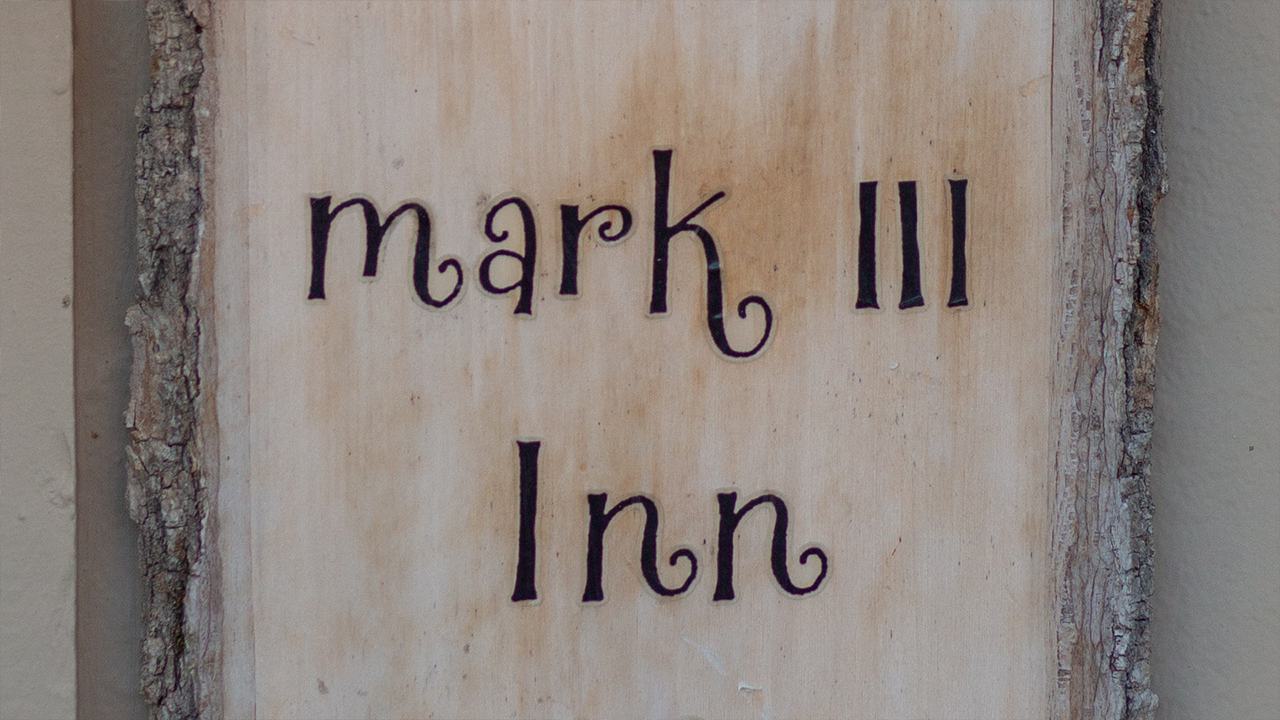 mark III
Inn